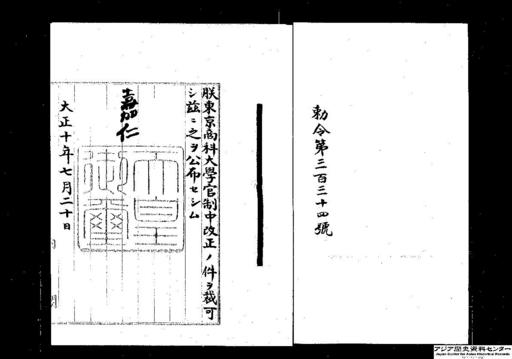 勅令第三百三十四號
朕東京商科大學官制中改正ノ件ヲ裁可
シ茲ニ之ヲ公布セシム
嘉仁
天皇御璽
大正十年七月二十日
アジア歴史資料センター
Japan Center for Asian Historical Records